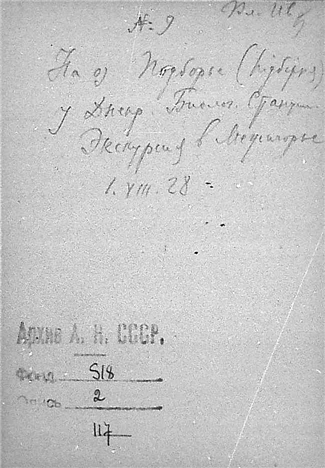 № 9
На оз Подборье (Підбірня)
у Днепр. Биолог. Станции
Экскурсия в Межигорье
1. VIII. 28
Архив А. Н. СССР.
Фонд 518
Опись 2
117